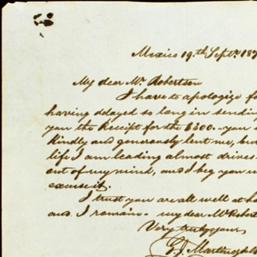 Mexico 19th Sept. 187
My dear Mr. Robertson
I have to apologize f
having delayed so long in sendin
you the Receipt for the $300. you s
kindly and generously lent me, bu
life I am leading almost drives
out of my mind, and I beg you w
excuse it.
I trust you are all well at ho
and I remain. my dear Mr. Robert
Very truly yours